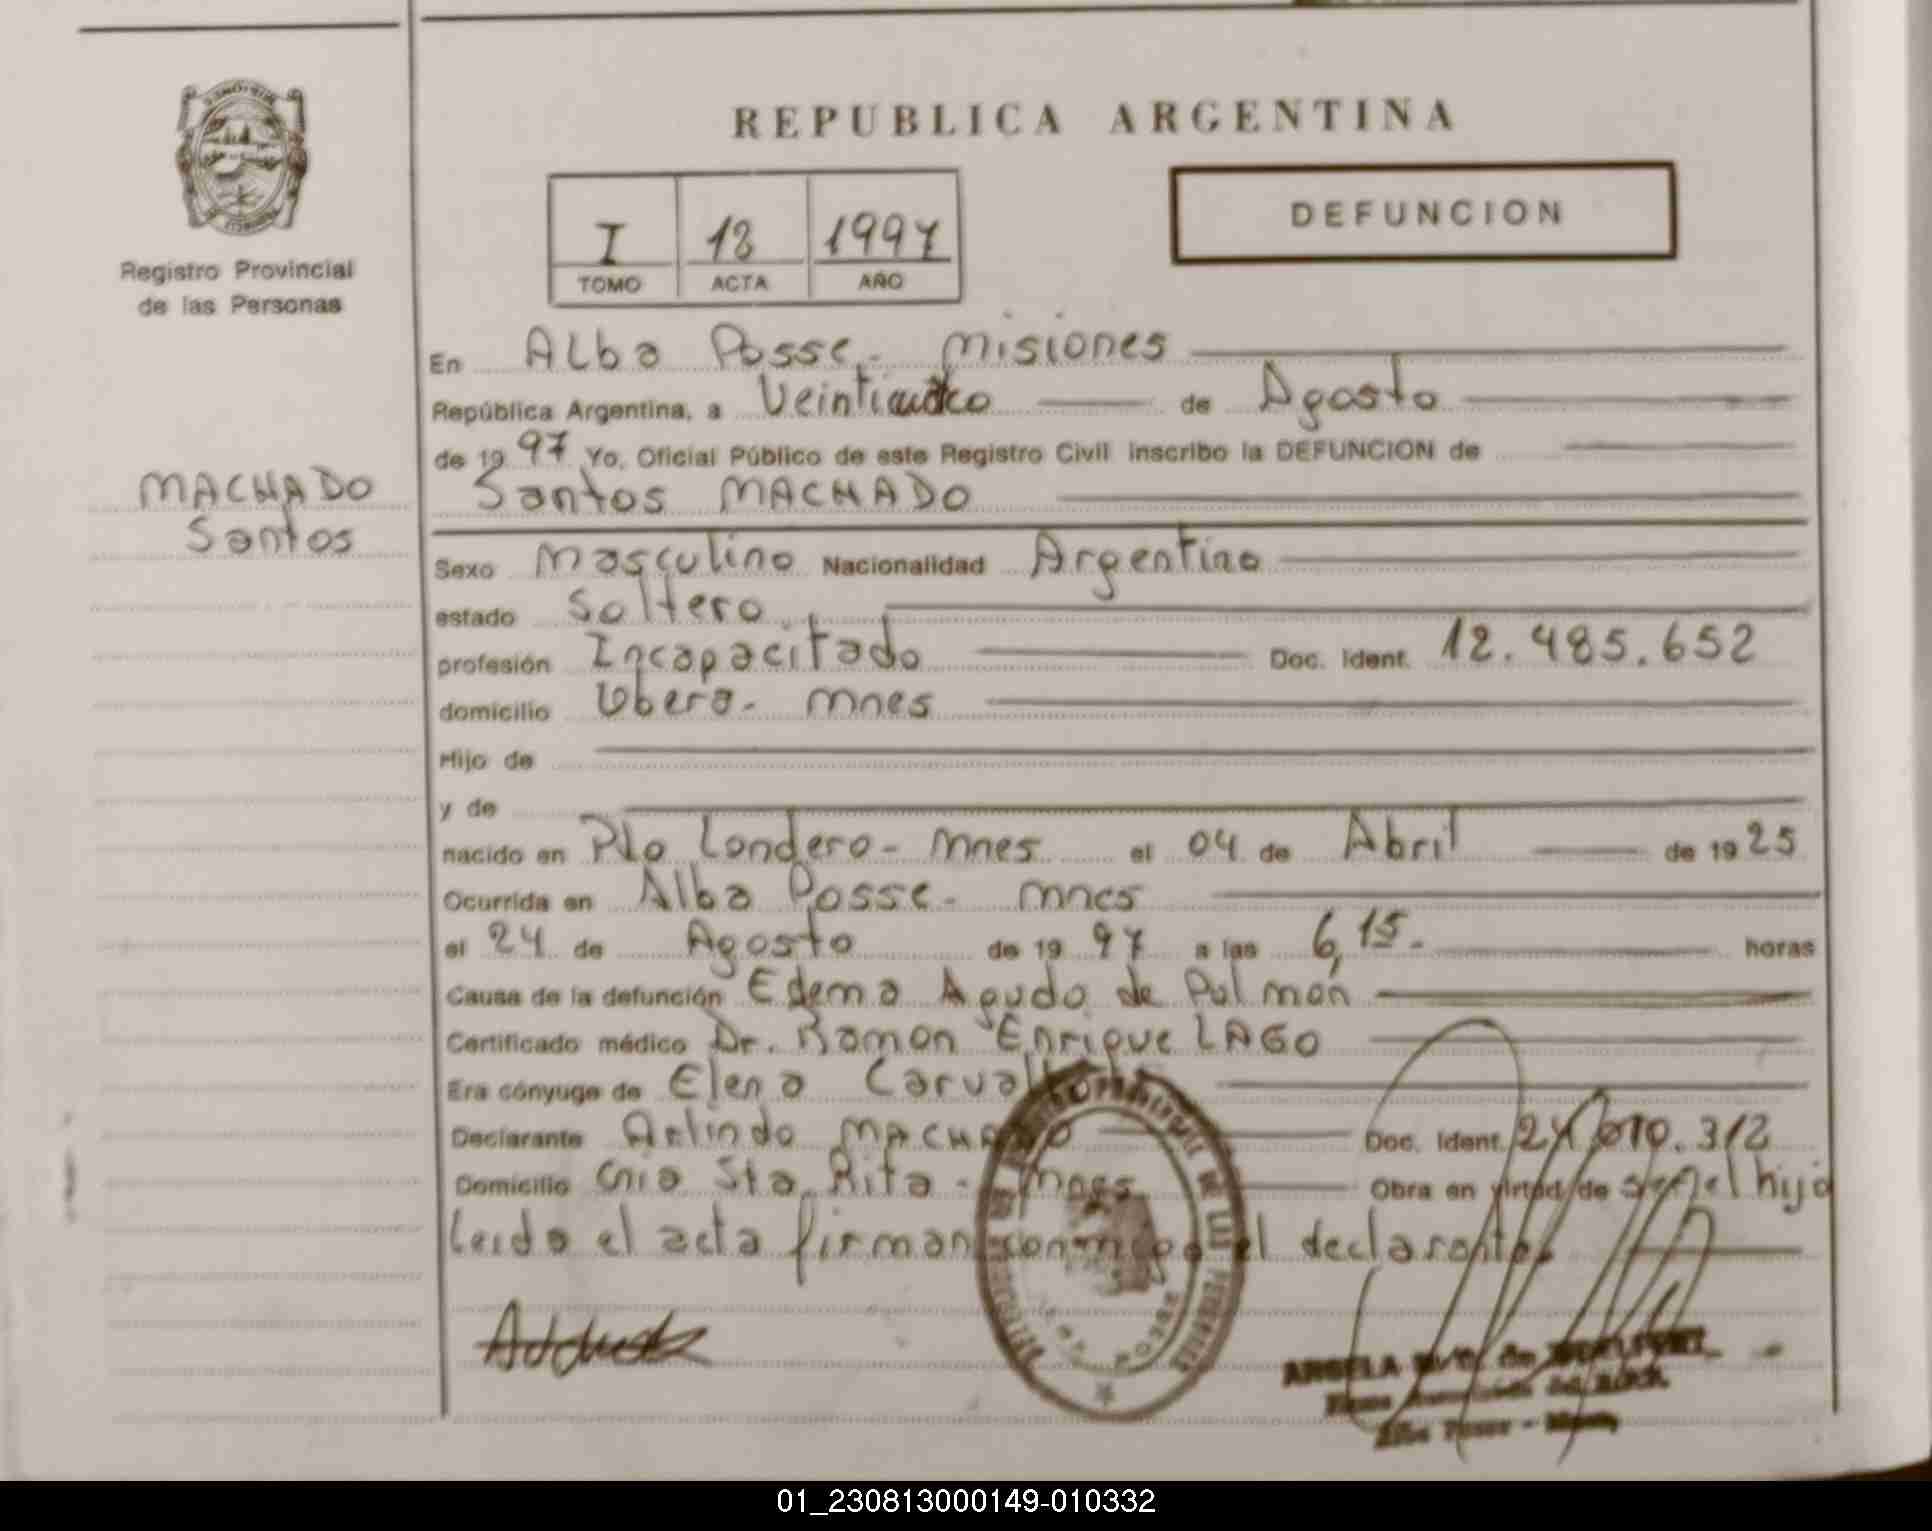 REPUBLICA ARGENTINA
Registro Provincial
de las Personas
I 18 1997
TOMO ACTA AÑO
DEFUNCION
MACHADO
Santos
En Alba Posse - Misiones
República Argentina, a de Agosto
de 19 97 Yo, Oficial Público de este Registro Civil inscribo la DEFUNCION de
Santos MACHADO
Sexo Masculino Nacionalidad Argentino
estado Soltero
profesión Incapacitado Doc. Ident. 12.485.652
domicilio Obera - Mnes
Hijo de
y de
nacido en Pto Londero - Mnes el 04 de Abril de 19 25
Ocurrida en Alba Posse - Mnes
el 24 de Agosto de 19 97 a las 6,15. horas
Causa de la defunción Edema Agudo de Pulmón
Certificado médico Dr. Ramon Enrique LAGO
Era cónyuge de Elena
Declarante Arlindo MACHADO Doc. Ident.
Domicilio Cnia Sta. Rita - Mnes Obra en virtud de ser el hijo
Leida el acta firman conmigo el declarante.
Alba Posse -
01_230813000149-010332